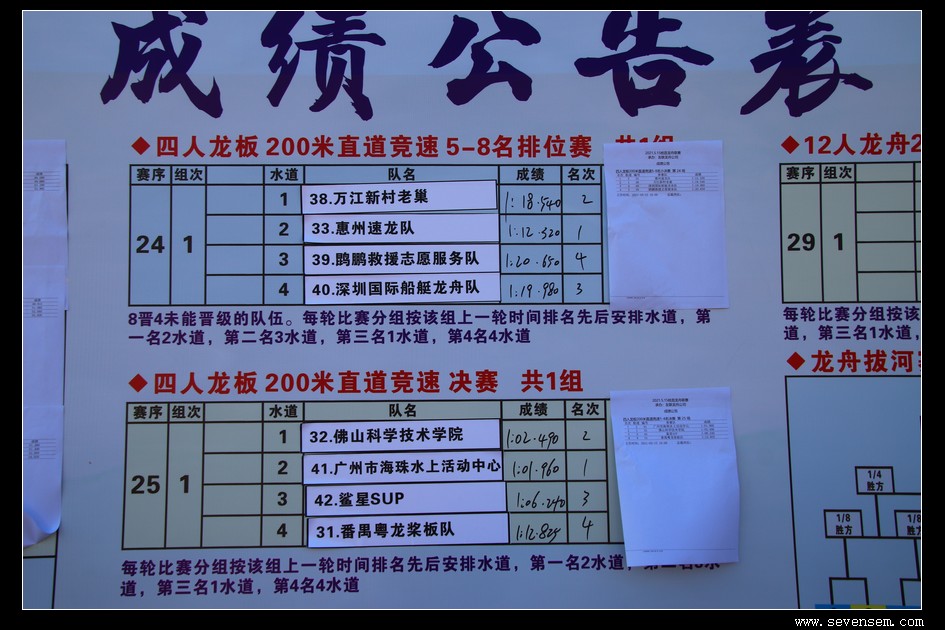 成绩公告表
◆四人龙板 200米直道竞速 5-8名排位赛 共1组
赛序 组次 水道 队名 成绩 名次
24 1
1 38.万江新村老巢 1:18.540 2
2 33.惠州速龙队 1:12.520 1
3 39.鹍鹏救援志愿服务队 1:20.650 4
4 40.深圳国际船艇龙舟队 1:19.980 3
8晋4未能晋级的队伍。每轮比赛分组按该组上一轮时间排名先后安排水道，第
一名2水道，第二名3水道，第三名1水道，第4名4水道
◆四人龙板 200米直道竞速 决赛 共1组
赛序 组次 水道 队名 成绩 名次
25 1
1 32.佛山科学技术学院 1:02.490 2
2 41.广州市海珠水上活动中心 1:01.960 1
3 42.鲨星SUP 1:06.240 3
4 31.番禺粤龙桨板队 1:12.825 4
每轮比赛分组按该组上一轮时间排名先后安排水道，第一名2水道，第二名3水
道，第三名1水道，第4名4水道
◆12人龙舟2
赛序 组次
29 1
每轮比赛分组按
道，第三名1水道，
◆龙舟拔河
1/4
胜方
1/8
胜方
1/8
胜方
www.sevensem.com